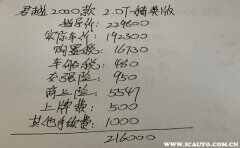 君越2020款 2.0T-精英版
指导价: 229800
实际车价: 192300
购置税: 16730
车船税: 480
交强险: 950
商业险: 5547
上牌费: 500
其他手续费: 1000
216000
WWW.XCAUTO.COM.CN